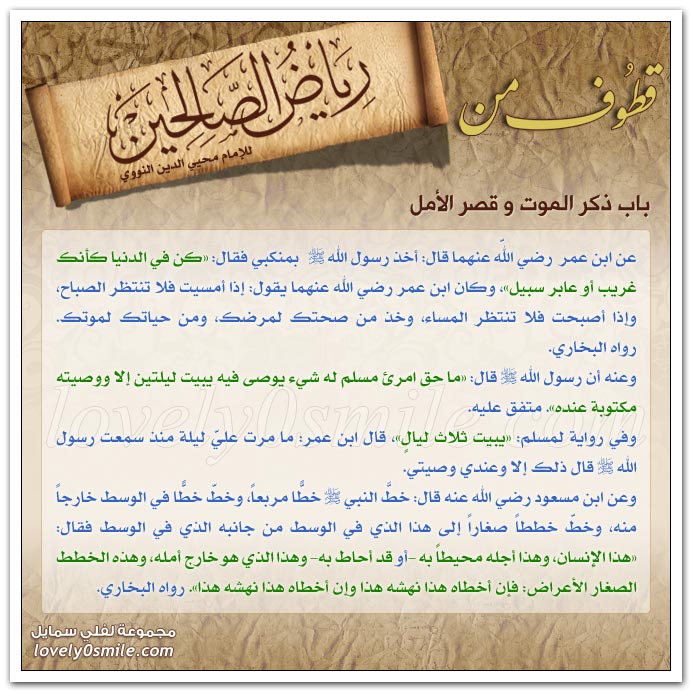 قطوف من
رياض الصالحين
للإمام محيي الدين النووي
باب ذكر الموت و قصر الأمل
عن ابن عمر رضي اللّه عنهما قال: أخذ رسول الله ﷺ بمنكبي فقال: «كن في الدنيا كأنك
غريب أو عابر سبيل»، وكان ابن عمر رضي الله عنهما يقول: إذا أمسيت فلا تنتظر الصباح،
وإذا أصبحت فلا تنتظر المساء، وخذ من صحتك لمرضك، ومن حياتك لموتك.
رواه البخاري.
وعنه أن رسول الله ﷺ قال: «ما حق امرئ مسلم له شيء يوصى فيه يبيت ليلتين إلا ووصيته
مكتوبة عنده»، متفق عليه.
وفي رواية لمسلم: «يبيت ثلاث ليالٍ»، قال ابن عمر: ما مرت عليّ ليلة منذ سمعت رسول
الله ﷺ قال ذلك إلا وعندي وصيتي.
وعن ابن مسعود رضي الله عنه قال: خطَّ النبي ﷺ خطًّا مربعاً، وخطّ خطًّا في الوسط خارجاً
منه، وخطّ خططاً صغاراً إلى هذا الذي في الوسط من جانبه الذي في الوسط فقال:
«هذا الإنسان، وهذا أجله محيطاً به -أو قد أحاط به- وهذا الذي هو خارج أمله، وهذه الخطط
الصغار الأعراض: فإن أخطاه هذا نهشه هذا وإن أخطاه هذا نهشه هذا». رواه البخاري.
lovely0smile.com
مجموعة لفلي سمايل
lovely0smile.com